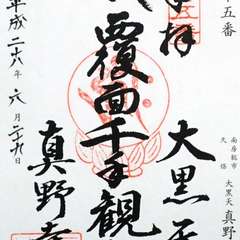 十五番
南房総市
久保
大黒天 真野
拝
大黒天
覆面千手観
真野寺
平成二十八年六月二十九日